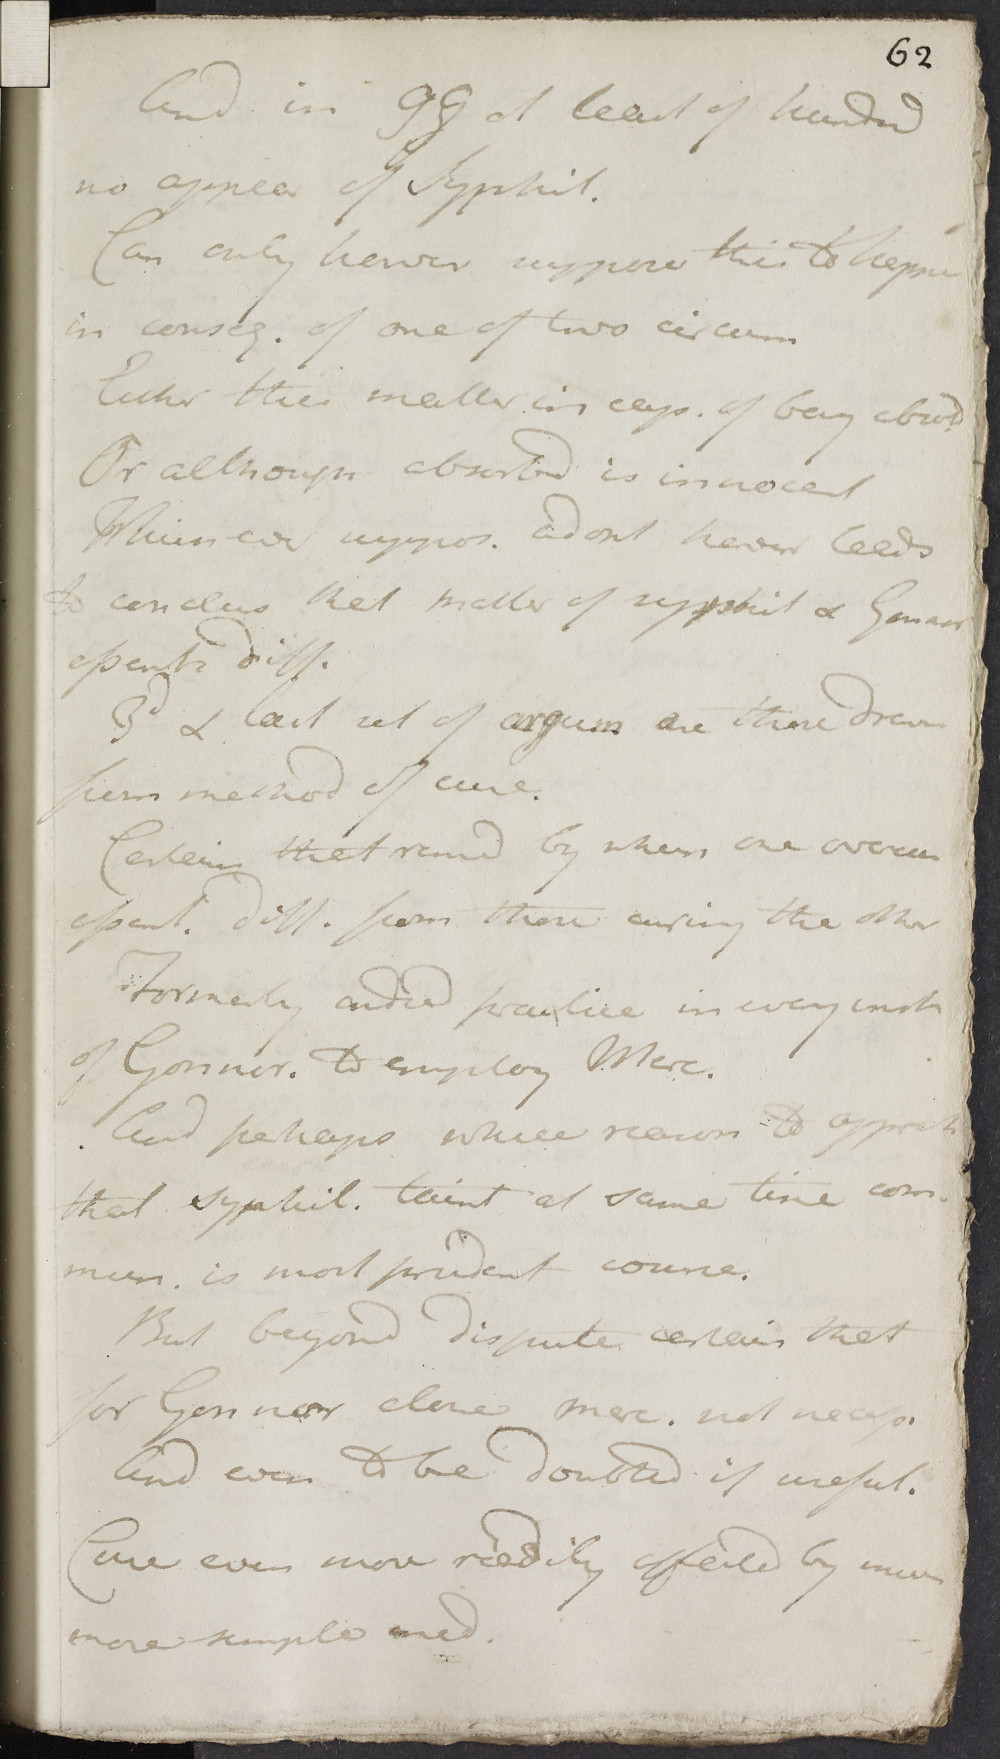 62
And in 99 at least of hundred
no appear of Syphil.
Can only however suppose this to happen
in conseq. of one of two circum
Either this matter incap. of being absorbd
Or although absorbed is innocent
Whichever suppos. adopt however leads
to conclus that matter of syphil & Gonnor
essent diff.
3d & last set of argum are those drawn
from method of cure.
Certain that remed by which one overcom
essent. diff. from those curing the other
Formerly indeed practice in every inst
of Gonnor. to employ Merc.
And perhaps where reason to appreh
that syphil. taint at same time com-
mun. is most prudent course.
But beyond dispute certain that
for Gonnor alone merc. not necess.
And even to be doubted if useful.
Cure even more readily effected by
more simple med.